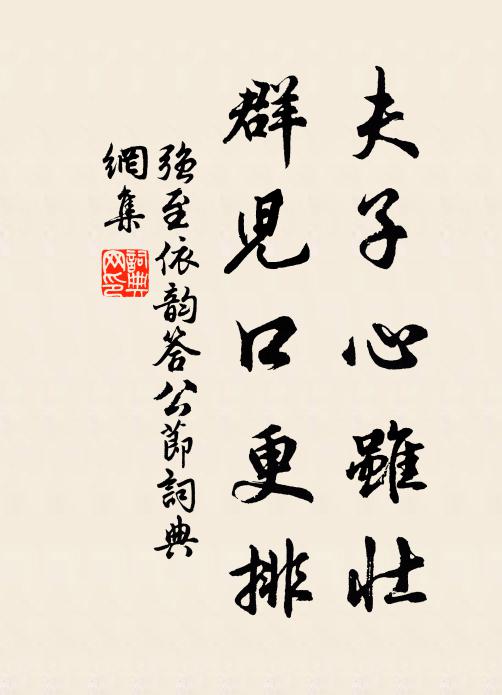 夫子心雖壯
群児口更排
強至依韵答公節詞典
網集
詞典網印